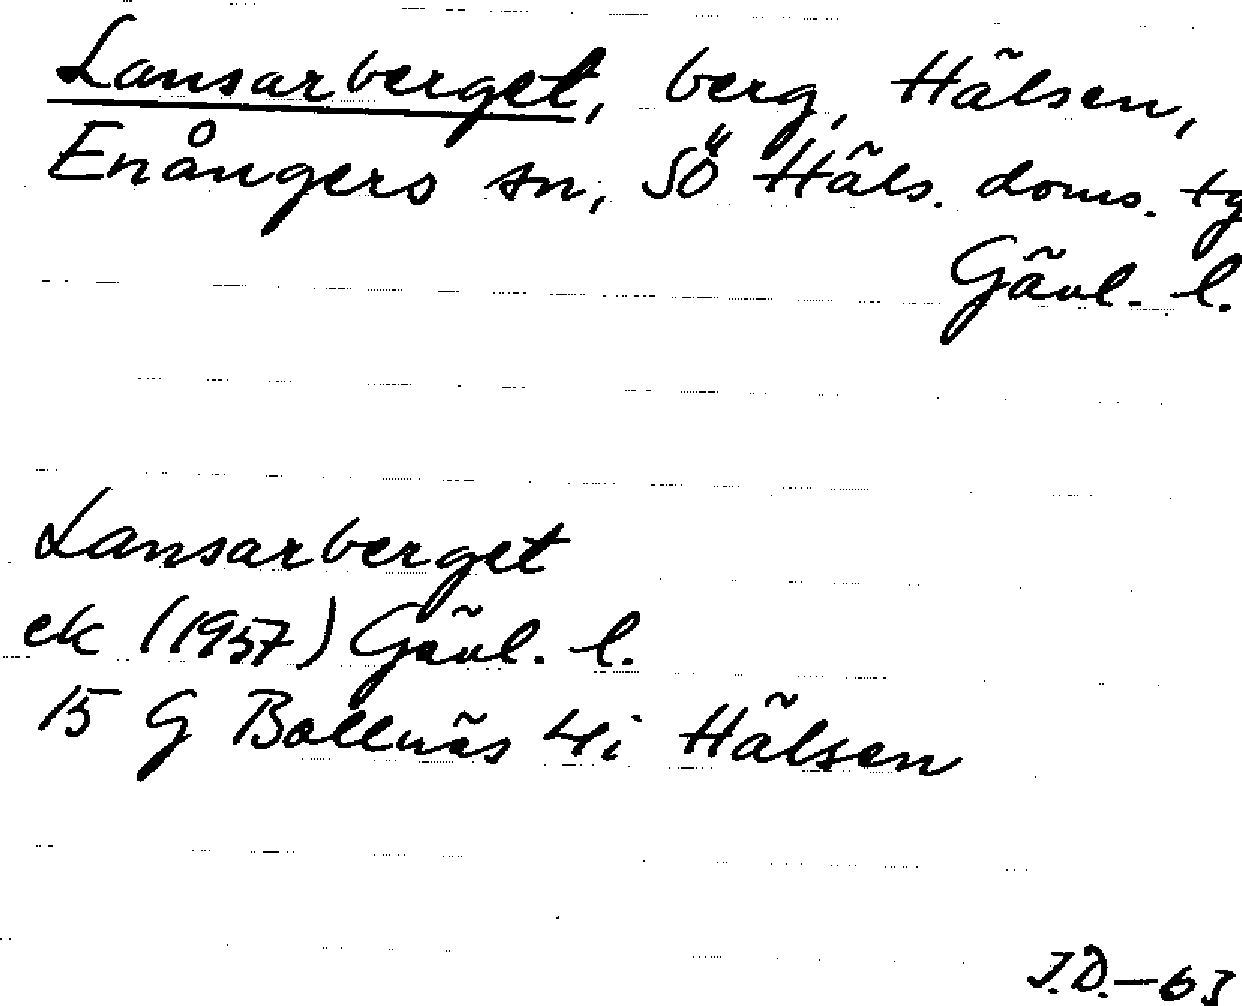 Lansarberget, berg, Hälsen,
Enångers sn, SÖ Häls. doms. tg
Gävl. l.
Lansarberget
ek (1957) Gävl. l.
15 G Bollnäs 4i Hälsen
J.D.–63